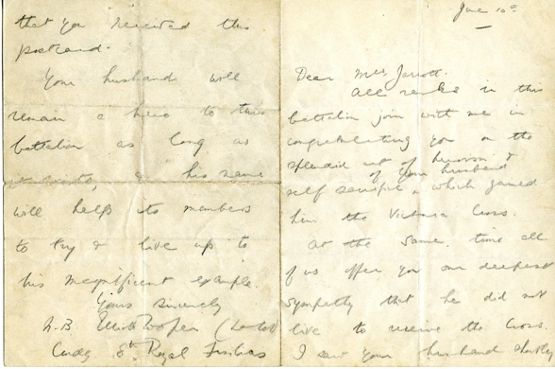 June 10th
Dear Mrs Jarratt.
All ranks in this
battalion join with me in
congratulating you on the
splendid act of heroism &
self sacrifice of your husband
which gained
him the Victoria Cross.
At the same time all
of us offer you our deepest
sympathy that he did not
live to receive the Cross.
I saw your husband shortly
that you received this
postcard.
Your husband will
remain a hero to this
battalion as long as
it exists, & his name
will help its members
to try & live up to
his magnificent example.
Yours sincerely
N.B. Elliott Cooper (Lt Col)
Cmdg 8th Royal Fusiliers